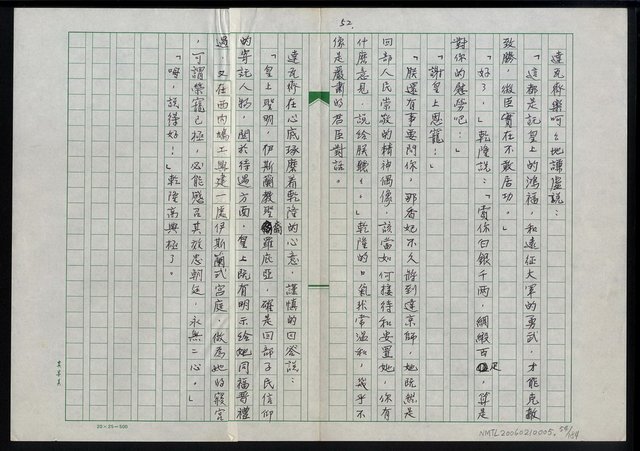 52.
達瓦齊樂呵呵地謙虛說：
「這都是託皇上的鴻福，和遠征大軍的勇武，才能克敵
致勝，微臣實在不敢居功。」
「好了，」乾隆說：「賞你白銀千兩，綢緞百疋，算是
對你的酬勞吧：」
「謝皇上恩寵！」
「朕還有事要問你，那香妃不久將到達京師，她既然是
回部人民崇敬的精神偶像，該當如何接待和安置她，你有
什麼意見，說給朕聽聽！」乾隆的口氣狀常溫和，幾乎不
像是嚴肅的君臣對話。
達瓦齊在心底琢磨着乾隆的心意，謹慎的回答說：
「皇上聖明，伊斯蘭教聖裔羅底亞，確是回部子民信仰
的寄託人物，關於待遇方面，皇上既有明示給她同福晉禮
遇，又在西內鳩工興建一處伊斯蘭式宮庭，做為她的寢宮
，可謂榮寵已極，必能感召其放忠朝廷，永無二心。」
「嗯，說得好！」乾隆高興極了。
20×25=500
NMTL20060210005. 55/154